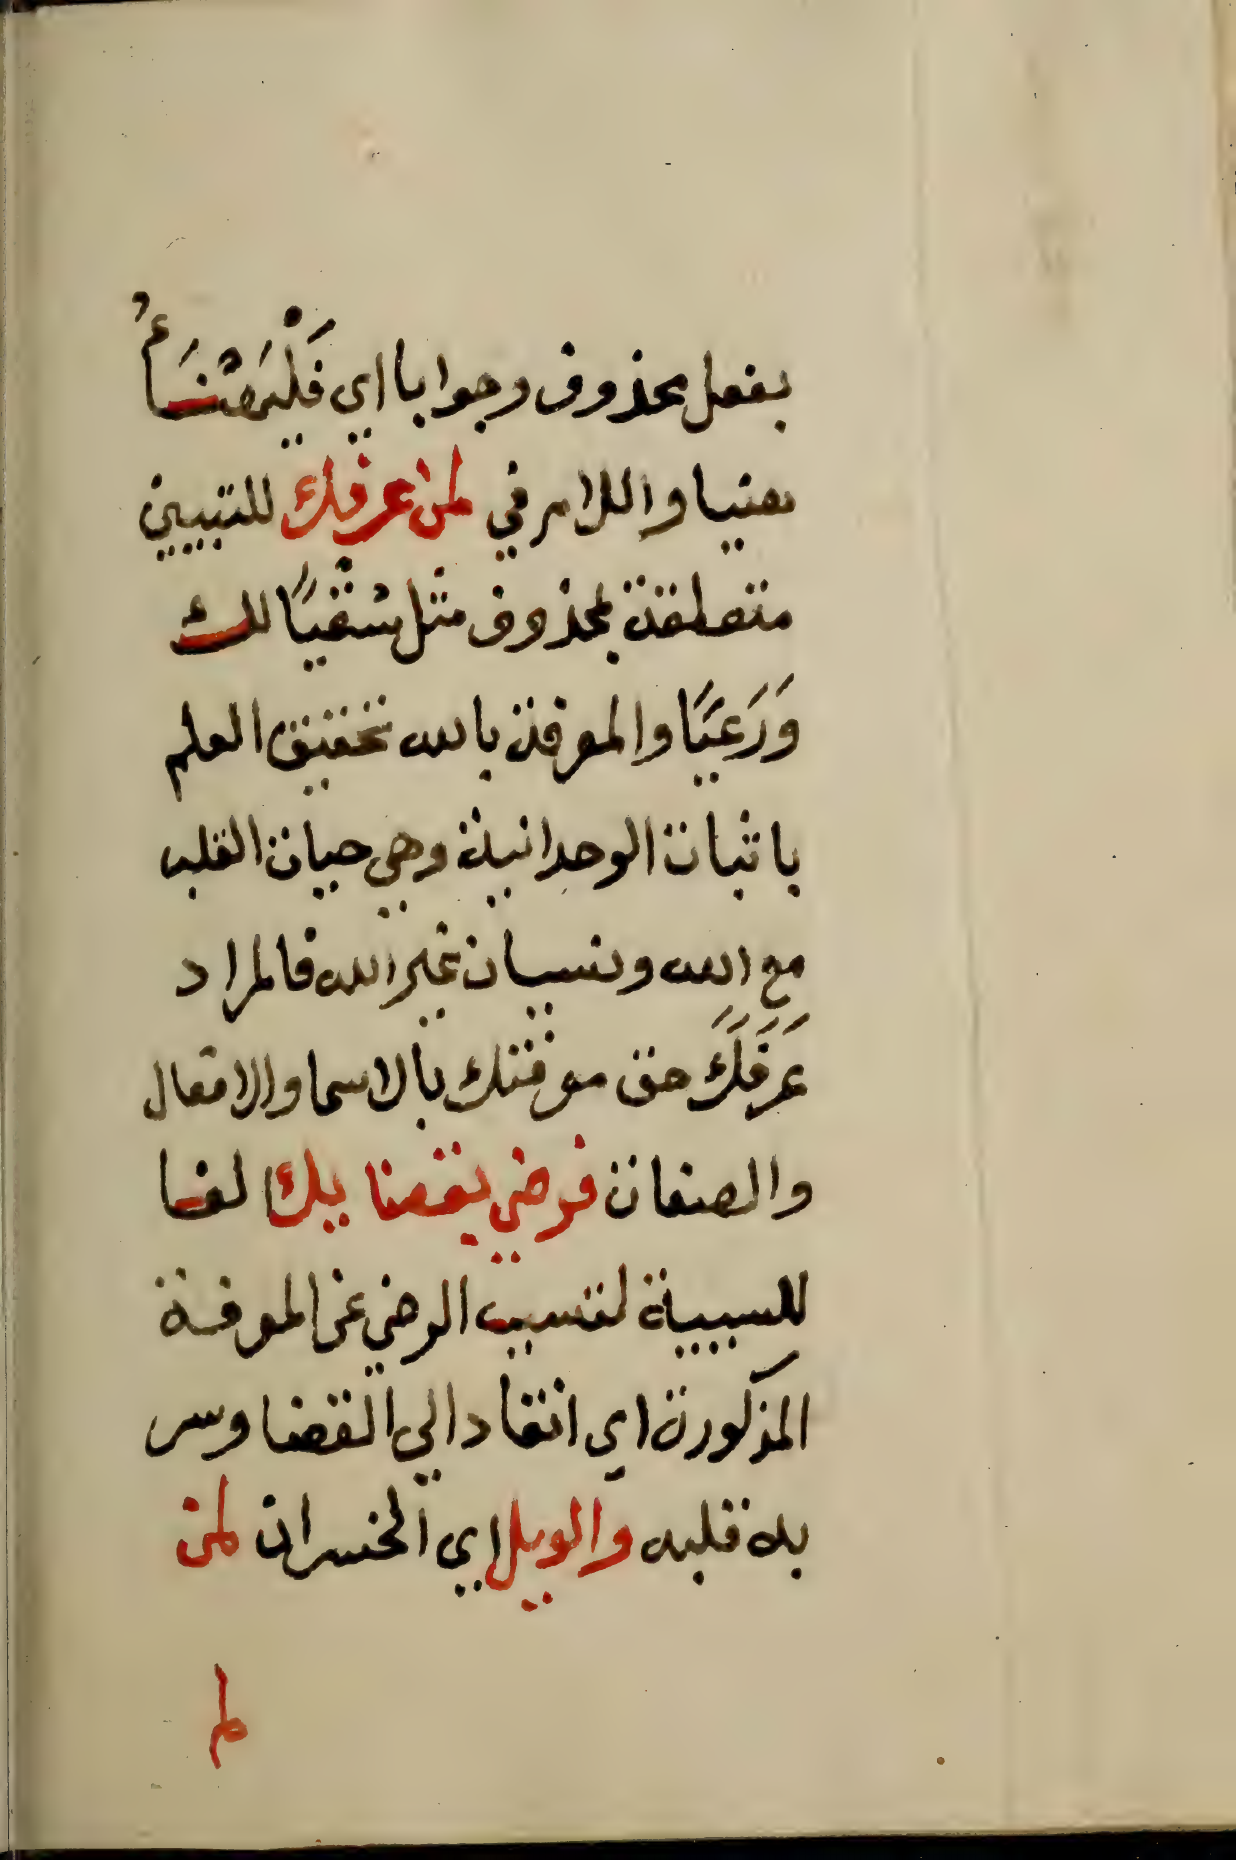 بفعل محذوف وجوابا اي فَلْيَهْنَأُ
هنيا واللام في لمن عرفك للتبيين
متعلقة بمحذوف مثل سَقْيًا لك
وَرَعَيًا والمعرفة بالله تحقيق العلم
باثبات الوحدانية وهي حيات القلب
مع الله ونسيان غير الله فالمراد
عَرَفَكَ حق معرفتك بالاسما والافعال
والصفات فرضي بقضايك الفا
للسببية لتسبب الرضي عن المعرفة
المذكورة اي انقاد الي القضا وسر
به قلبه والويل اي الخسران لمن
لم